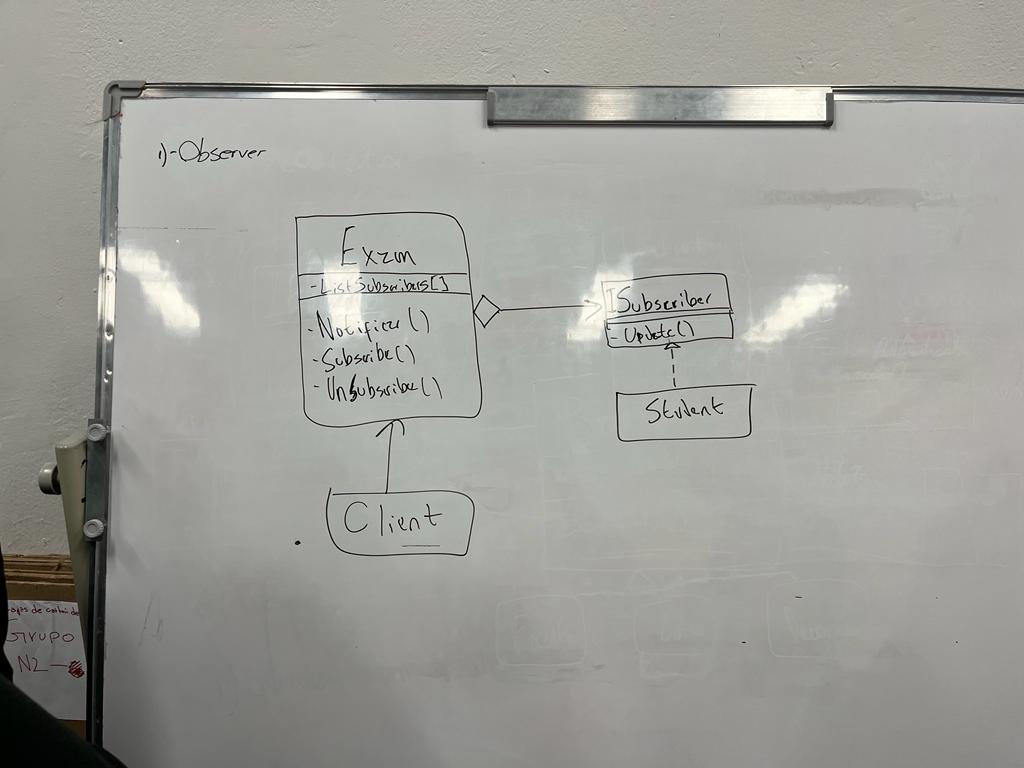 1)-Observer
Exam
-ListSubscribers[]
-Notificar()
-Subscribe()
-UnSubscribe()
ISubscriber
-Update()
Student
Client
Grupo
N2